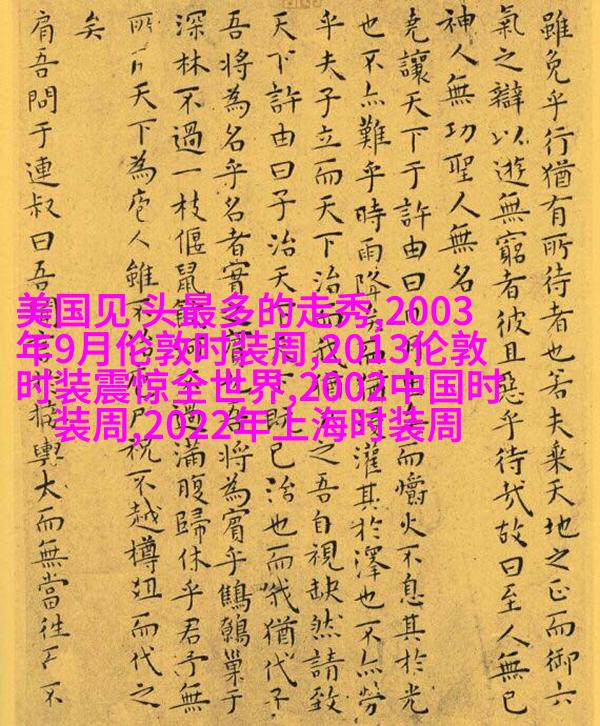 雖免乎行猶有所待者也若夫乘天地之正而御六
氣之辯以遊無窮者彼且惡乎待哉故曰至人無已
神人無功聖人無名
堯讓天下于許由曰日月而爝火不息其於光
也不亦難乎時雨降矣浸灌其於澤也不亦勞
乎夫子立而天下治而我之吾自視缺然請致
天下許由曰子治天下既已治也而我猶代子
吾將為名乎名者實之賓吾將為賓乎鷦鷯巢于
深林不過一枝偃鼠飲過滿腹歸休乎君予無
所天下為庖人雖不治尸祝不越樽俎而代之
矣
肩吾問于連叔曰吾聞言於接輿大而無當往而不
美国见 头最多的走秀,2003
年9月伦敦时装周,2013伦敦
时装震惊全世界,2002中国时
装周,2022年上海时装周